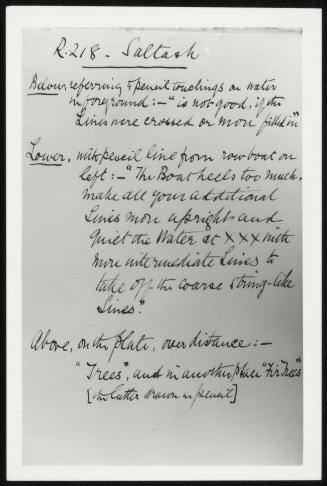 R.218 - Saltash
Below, referring to pencil touchings on water
in foreground :- "is not good, if the
Lines were crossed or more filled in"
Lower, with pencil line from rowboat on
left :- "The Boat heels too much.
make all your additional
Lines more uprights and
quiet the Water at XXX with
more intermediate Lines to
take off the coarse string-like
Lines."
Above, on the plate, over distance :-
"Trees", and in another place "Fir Trees"
[the latter drawn in pencil]